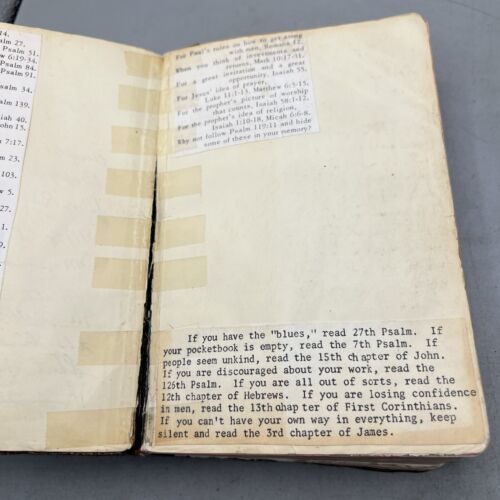 14.
alm 27.
Psalm 51.
w 6:19-34.
Psalm 84.
Psalm 91.
salm 34.
alm 139.
iah 40.
ohn 15.
7:17.
m 23.
103.
w 5.
27.
1.
8.
9.
4.
For Paul's rules on how to get along
with men, Romans 12.
When you think of investments and
returns, Mark 10:17-31.
For a great invitation and a great
opportunity, Isaiah 55.
For Jesus' idea of prayer,
Luke 11:1-13, Matthew 6:5-15.
For the prophet's picture of worship
that counts, Isaiah 58:1-12.
For the prophet's idea of religion,
Isaiah 1:10-18, Micah 6:6-8.
Why not follow Psalm 119:11 and hide
some of these in your memory?
If you have the "blues," read 27th Psalm. If
your pocketbook is empty, read the 7th Psalm. If
people seem unkind, read the 15th chapter of John.
If you are discouraged about your work, read the
126th Psalm. If you are all out of sorts, read the
12th chapter of Hebrews. If you are losing confidence
in men, read the 13th chapter of First Corinthians.
If you can't have your own way in everything, keep
silent and read the 3rd chapter of James.